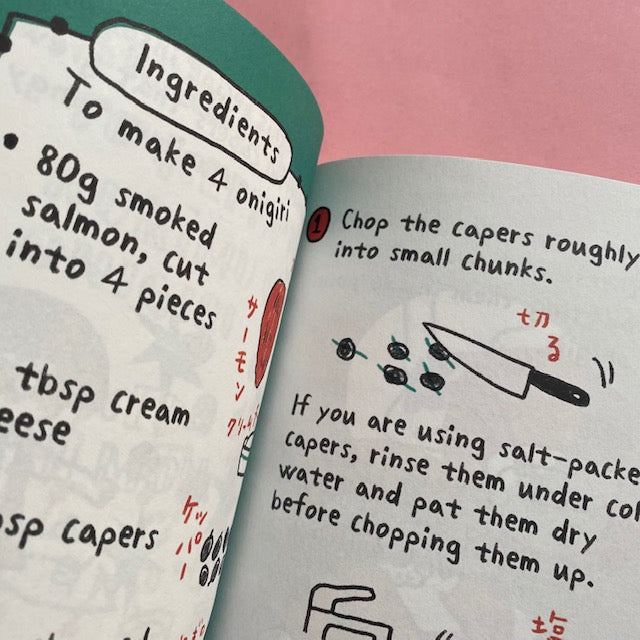 Ingredients
To make 4 onigiri
• 80g smoked
salmon, cut
into 4 pieces
サーモン
tbsp cream
クリーム
tbsp capers
ケッパー
1 Chop the capers roughly
into small chunks.
切る
If you are using salt-packe
capers, rinse them under col
water and pat them dry
before chopping them up.
塩